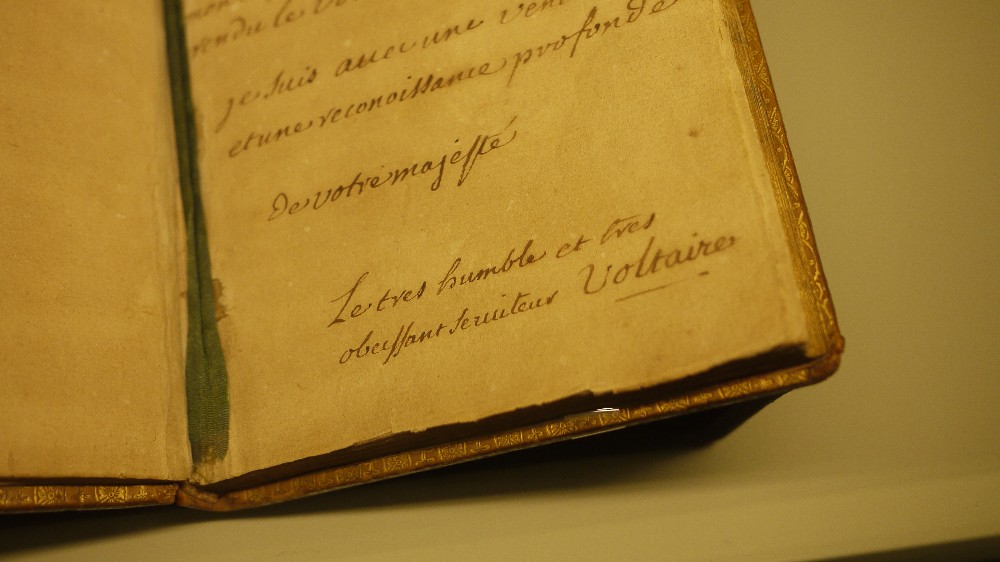 rendu le
je suis avec une
et une reconoissance profonde
de votre majesté
Le tres humble et tres
obeissant serviteur Voltaire